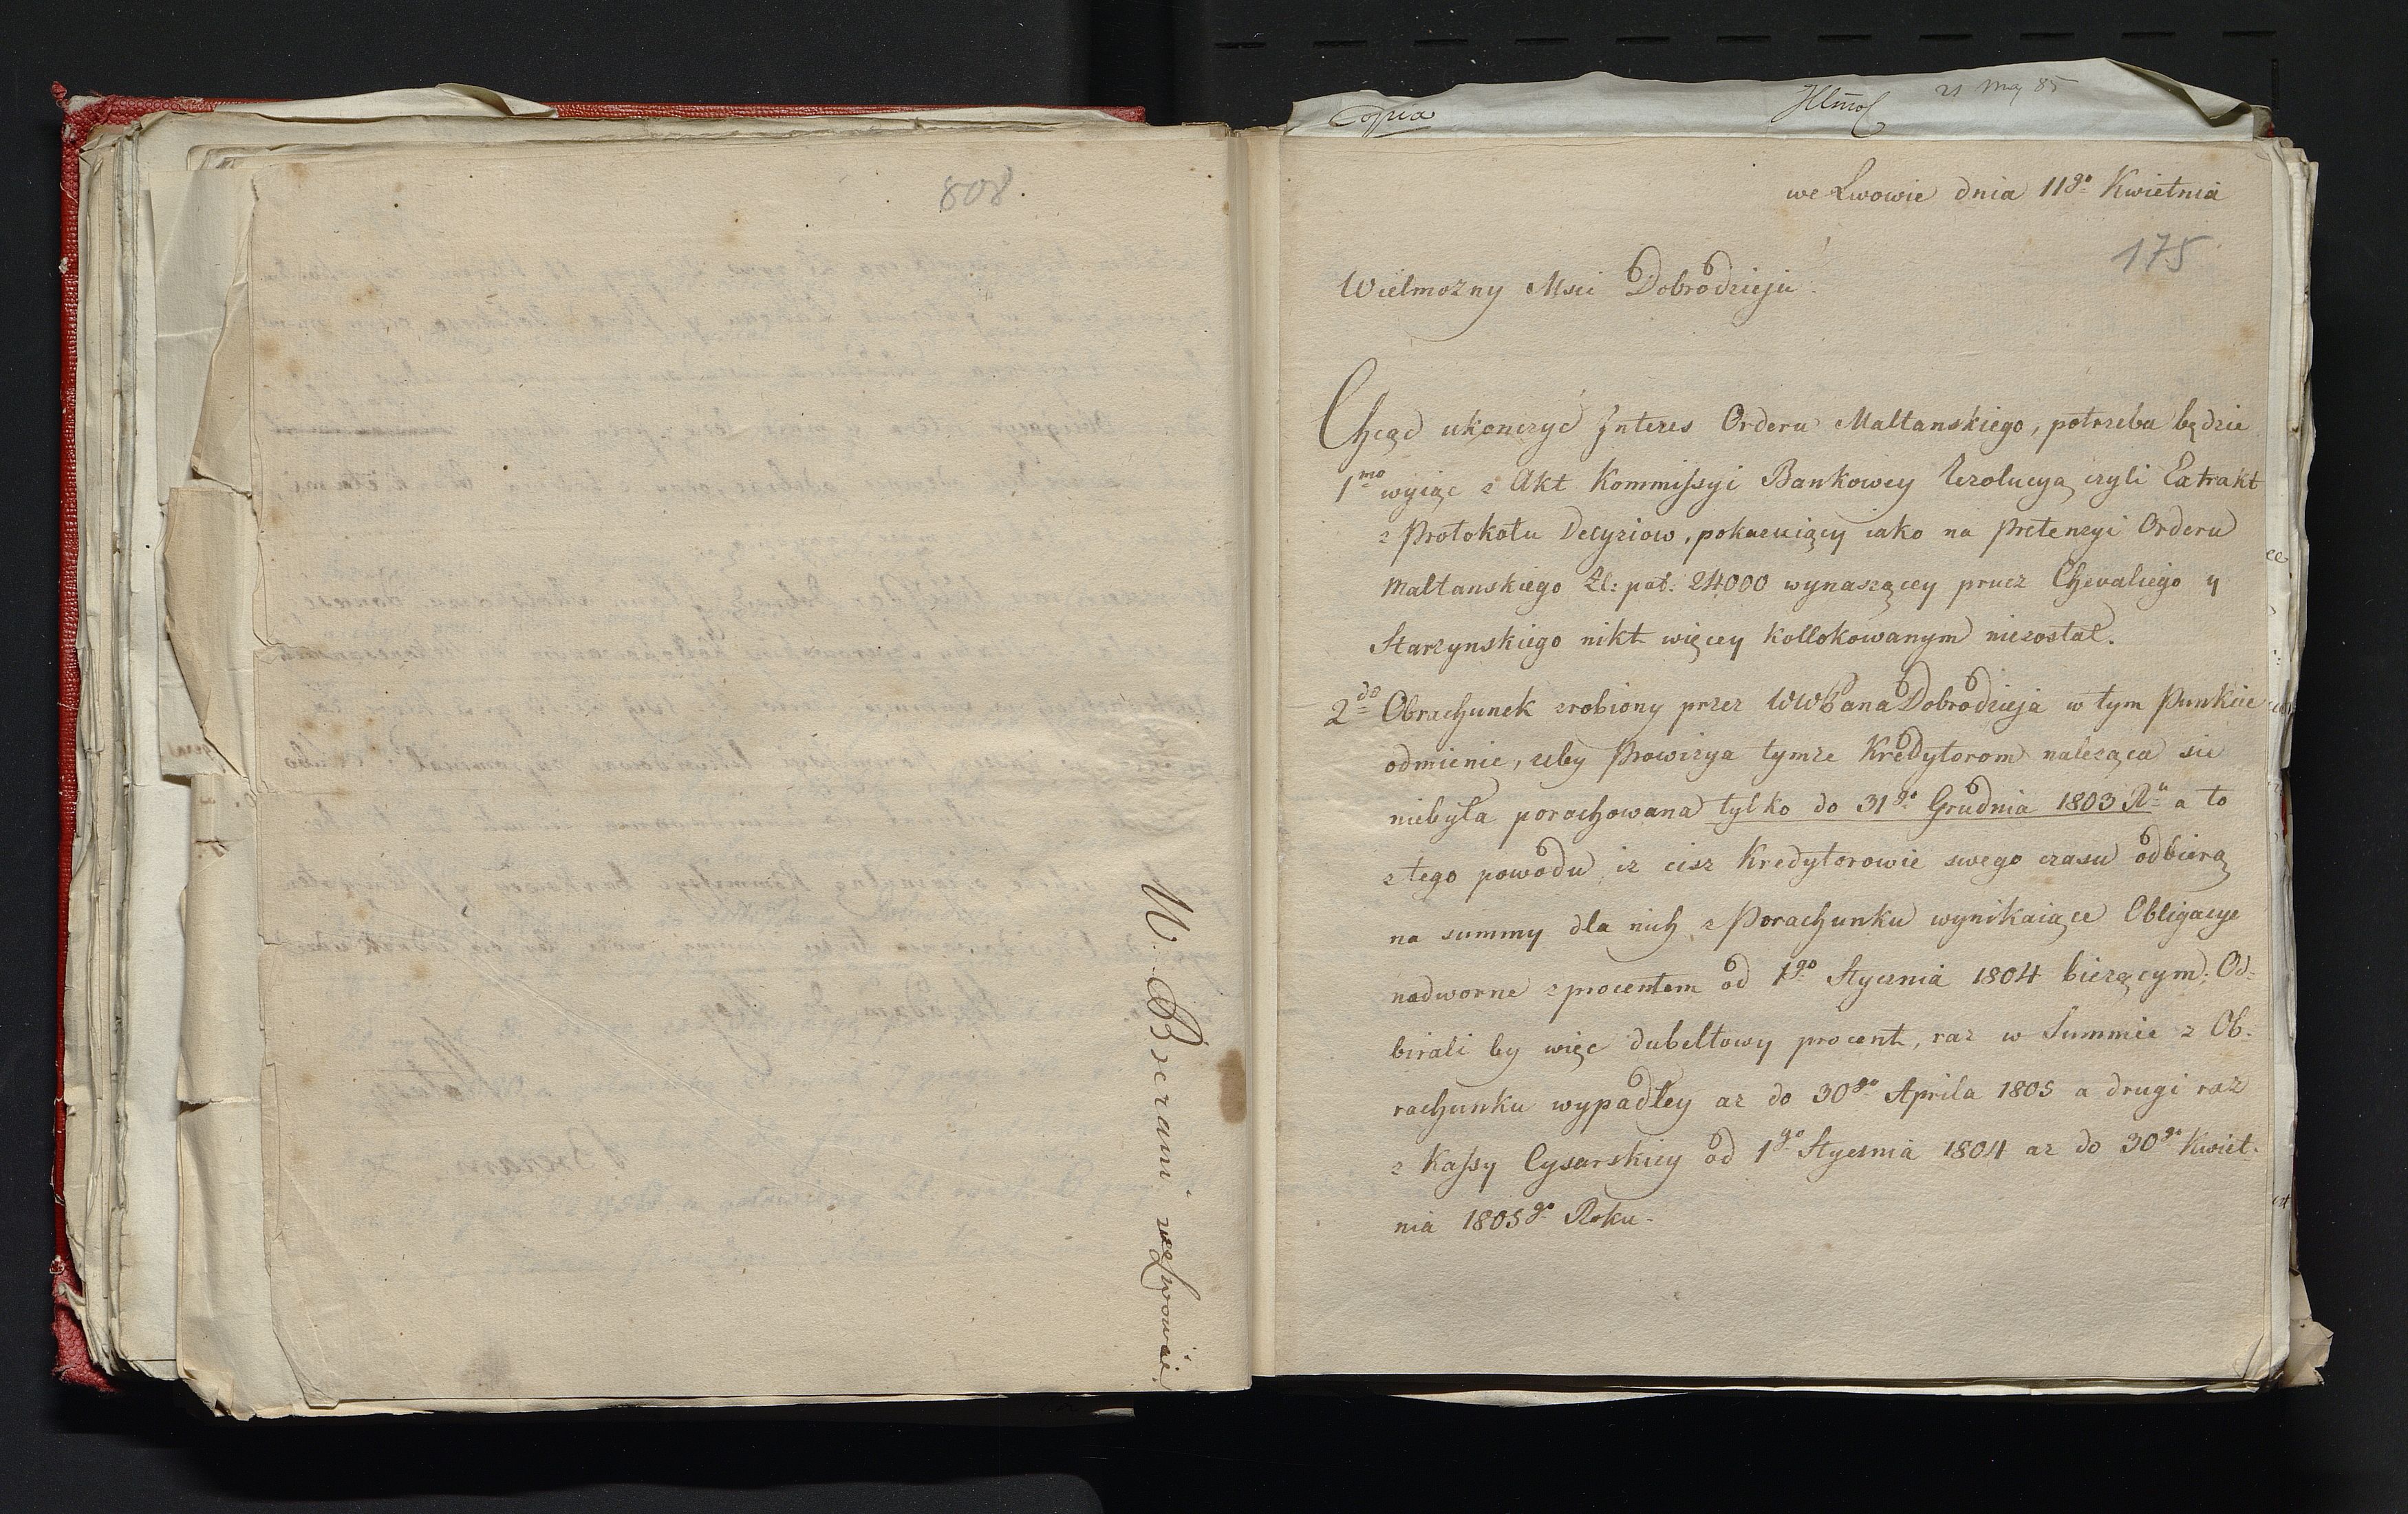 808.
W. Breram. we Lwowie.
Copia
21 May 85
we Lwowie dnia 11go Kwietnia
175
Wielmozny Msci Dobrodzieju.
Chcąc ukonczyć Interes Orderu Maltanskiego, potrzeba będzie
1mo wyiąc z Akt Kommissyi Bankowey Rezolucyą czyli Extrakt
z Protokołu Decyziow, pokazuiący iako na Pretensyi Orderu
Maltanskiego Zł: pol: 24000 wynaszącey prucz Chevaliego y
Starzynskiego nikt więcey kollokowanym niezostał.
2do Obrachunek zrobiony przez WWPana Dobrodzieja w tym Punkcie
odmienic, zeby Prowizya tymze Kredytorom naleząca sie
niebyła porachowana tylko do 31go Grudnia 1803 Ru a to
z tego powodu, iz cisz Kredytorowie swego czasu odbiorą
na summy dla nich z Porachunku wynikaiące Obligacye
nadworne z procentem od 1go Stycznia 1804 biezącym; Od-
birali by więc dubeltowy procent, raz w Summie z Ob-
rachunku wypadłey az do 30go Aprila 1805 a drugi raz
z Kassy Cysarskiey od 1go Stycznia 1804 az do 30go Kwiet-
nia 1805go Roku.